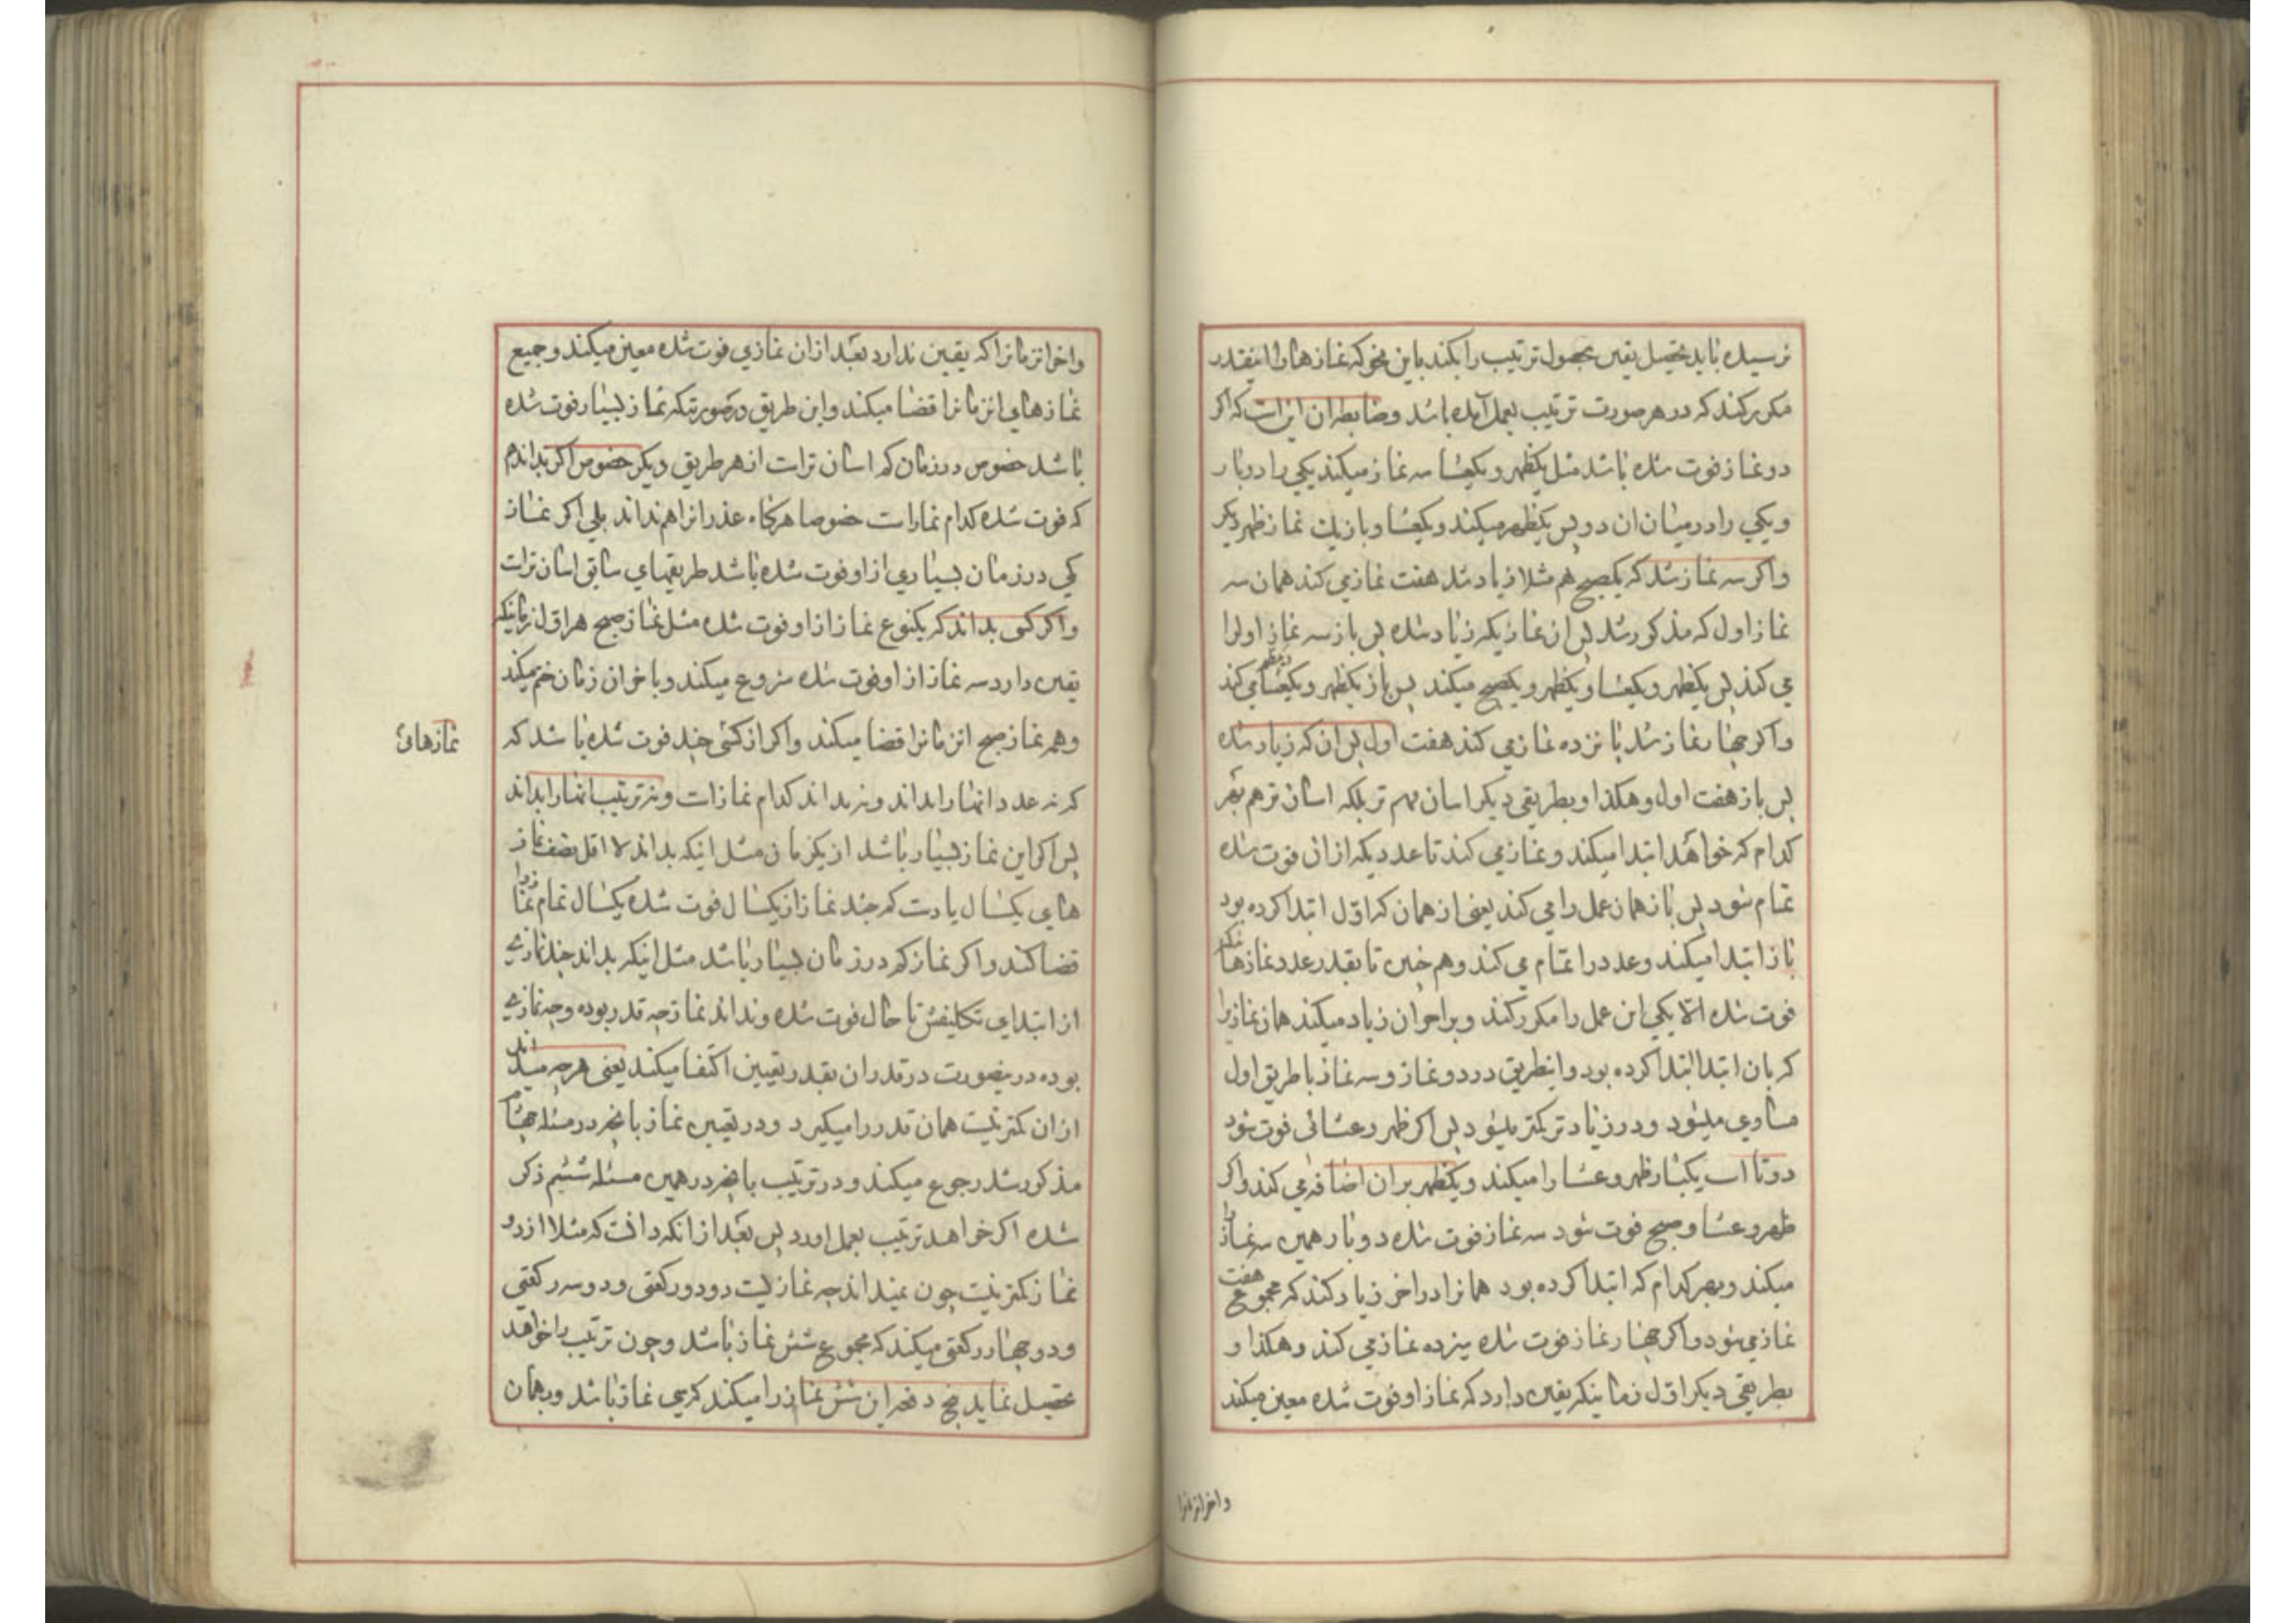 نرسیده باید تحصیل یقین بحصول ترتیب را بکند باین نحو که نمازها را اینقدر
مکرر کند که در هر صورت ترتیب بعمل آمده باشد و ضابطه ان اینست که اکر
دو نماز فوت شده باشد مثل یکظهر و یکعشا سه نماز میکند یکی را دو بار
و یکی را در میان ان دو پس یکظهر میکند و یکعشا و باز یك نماز ظهر دیکر
و اکر سه نماز شد که یکصبح هم مثلا زیاد شد هفت نماز می کند همان سه
نماز اول که مذکور شد پس ان نمازیکه زیاد شده پس باز سه نماز اول را
می کند پس یکظهر و یکعشا و یکظهر و یکصبح میکند پس باز یکظهر و یکعشا می کند
و اکر چهار نماز شد پانزده نماز می کند هفت اول پس ان که زیاد شده
پس باز هفت اول و هکذا و بطریقی دیکر اسان بهم تر بلکه اسان تر هم بهر
کدام که خواهد ابتدا میکند و نماز می کند تا عددیکه از ان فوت شده
تمام شود پس باز همان عمل را می کند یعنی از همان که اوّل ابتدا کرده بود
باز ابتدا میکند و عدد را تمام می کند و هم چنین تا بقدر عدد نمازها
فوت شده الّا یکی این عمل را مکرر کند و بر اخر ان زیاد میکند همان نمازیرا
که بان ابتدا ابتدا کرده بود و اینطریق در دو نماز و سه نماز با طریق اول
مساوی میشود و در زیادتر کمتر میشود پس اکر ظهر و عشائی فوت شود
دوتا است یکبار ظهر و عشا را میکند و یکظهر بر ان اضافه می کند و اکر
ظهر و عشا و صبح فوت شود سه نماز فوت شده دو بار همین سه نماز را
میکند و بهر کدام که ابتدا کرده بود همانرا در اخر زیاد کند که مجموع هفت
نماز می شود و اکر چهار نماز فوت شده سیزده نماز می کند و هکذا و
بطریقی دیکر اوّل زمانیکه یقین دارد که نماز او فوت شده معین میکند
و اخر انزمانرا
و اخر انزمانرا که یقین ندارد بعد از ان نمازی فوت شده معین میکند و جمیع
نمازهای انزمانرا قضا میکند و این طریق در صورتیکه نماز بسیار فوت شده
باشد خصوص در زمان کم اسان تر است از هر طریق دیکر خصوص اکر نداند هم
که فوت شده کدام نماز است خصوصا هرکاه عدد انرا هم نداند بلی اکر نماز
کمی در زمان بسیاری از او فوت شده باشد طریقهای سابق اسان تر است
و اکر کسی بداند که یکنوع نماز از او فوت شده مثل نماز صبح هر اوّل زمانیکه
یقین دارد سه نماز از او فوت شده شروع میکند و باخر ان زمان ختم میکند
و همه نماز صبح انزمانرا قضا میکند و اکر از کسی چند فوت شده باشد که
نمازهائی
که نه عدد انها را بداند و نه بداند کدام نماز است و نه ترتیب انها را بداند
پس اکر این نماز بسیار باشد از یکزمان مثل اینکه بداند لا اقل نصف نماز
های یکسال یا دست کم چند نماز از یکسال فوت شده یکسال تمام نماز را
قضا کند و اکر نماز کم در زمان بسیار باشد مثل اینکه بداند چند نمازی
از ابتدای تکلیفش تا حال فوت شده و نداند نماز چه قدر بوده و چه نمازی
بوده در ینصورت در قدر ان بقدر یقین اکتفا میکند یعنی هر چه میداند
از ان کمتر نیست همان قدر را میکیرد و در تعیین نماز بانچه در مسئله چهارم
مذکور شد رجوع میکند و در ترتیب بانچه در همین مسئله ششم ذکر
شده اکر خواهد ترتیب بعمل اورد پس بعد از انکه دانست که مثلا از دو
نماز کمتر نیست چون نمیداند چه نماز یست دو دو رکعتی و دو سه رکعتی
و دو چهار رکعتی میکند که مجموع شش نماز باشد و چون ترتیب را خواهد
تحصیل نماید پنج دفعه این شش نماز را میکند که سی نماز باشد و بهمان